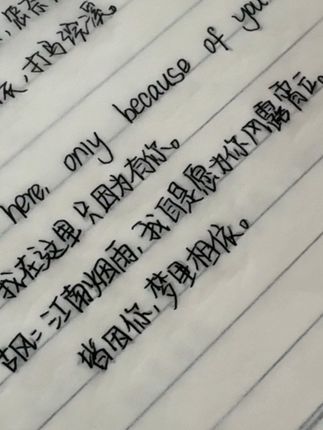 打马浣溪。
here, only because of you
我在这里 只因为有你。
古风:江南烟雨,我自是愿为你风露宵立。
皆因你,梦里相依。